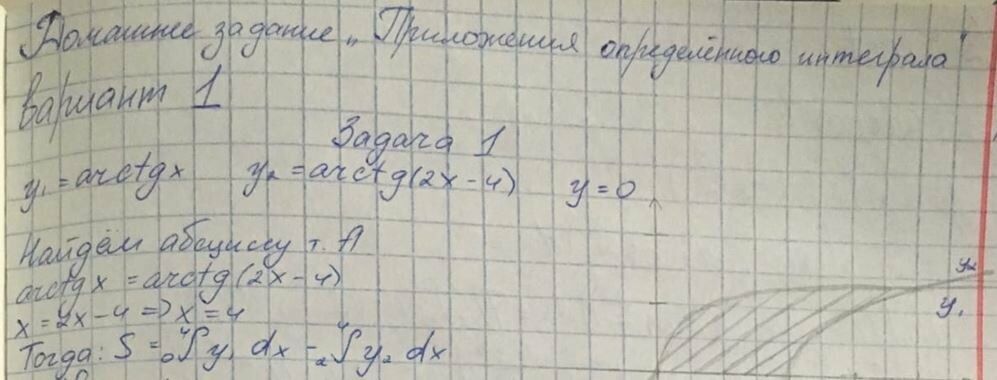 Домашнее задание „Приложения определённого интеграла"
Вариант 1
Задача 1
y₁ = arctg x y₂ = arctg(2x - 4) y = 0
Найдём абсциссу т. А
arctg x = arctg(2x - 4)
x = 2x - 4 => x = 4
Тогда: S = ₀⁴∫ y₁ dx - ₂⁴∫ y₂ dx
y₂
y₁